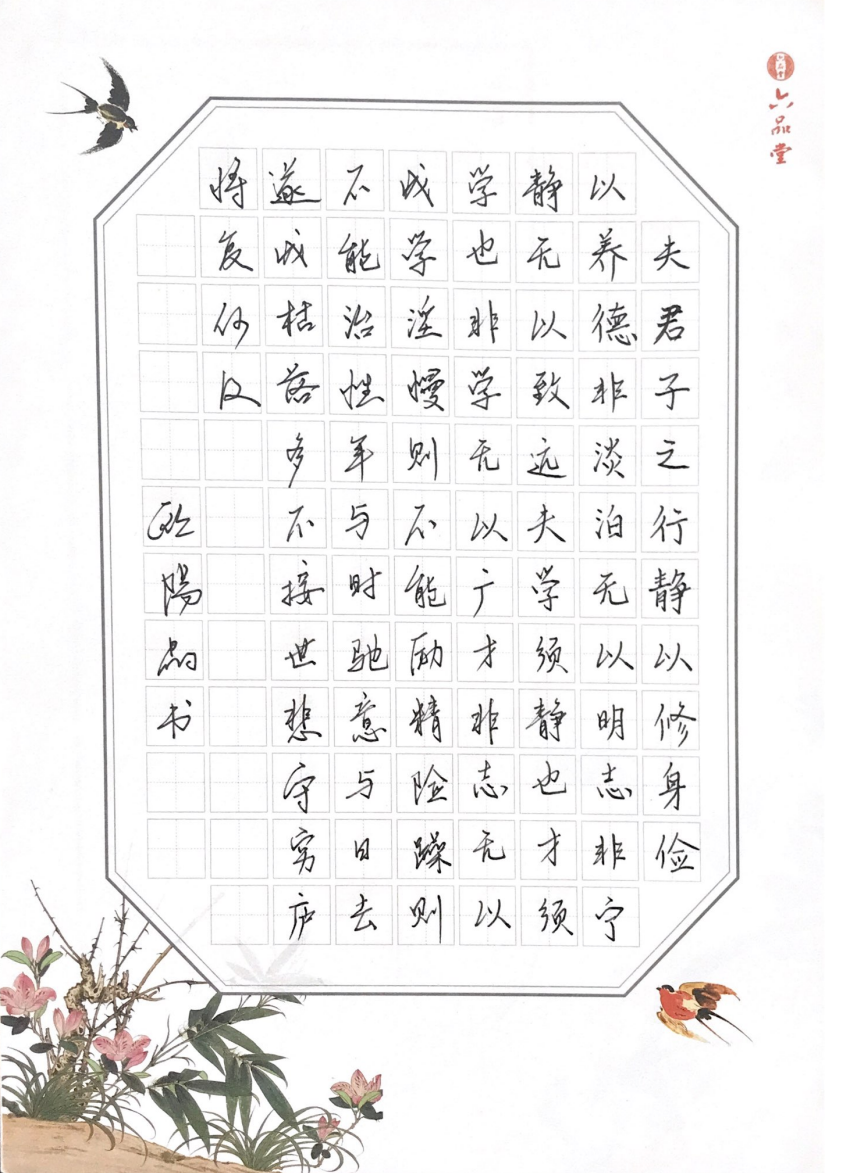 夫君子之行静以修身俭
以养德非淡泊无以明志非宁
静无以致远夫学须静也才须
学也非学无以广才非志无以
成学淫慢则不能励精险躁则
不能治性年与时驰意与日去
遂成枯落多不接世悲守穷庐
将复何及
欧陽书
六品堂